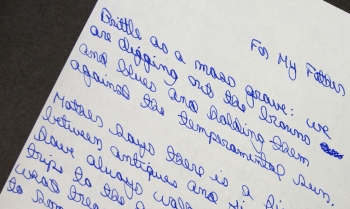 For My Father
Brittle as a mass grave: we
are digging out the browns
and blues and holding them
against the temperamental sun.
Mother says there is a
between antiques and
have always
trips to the